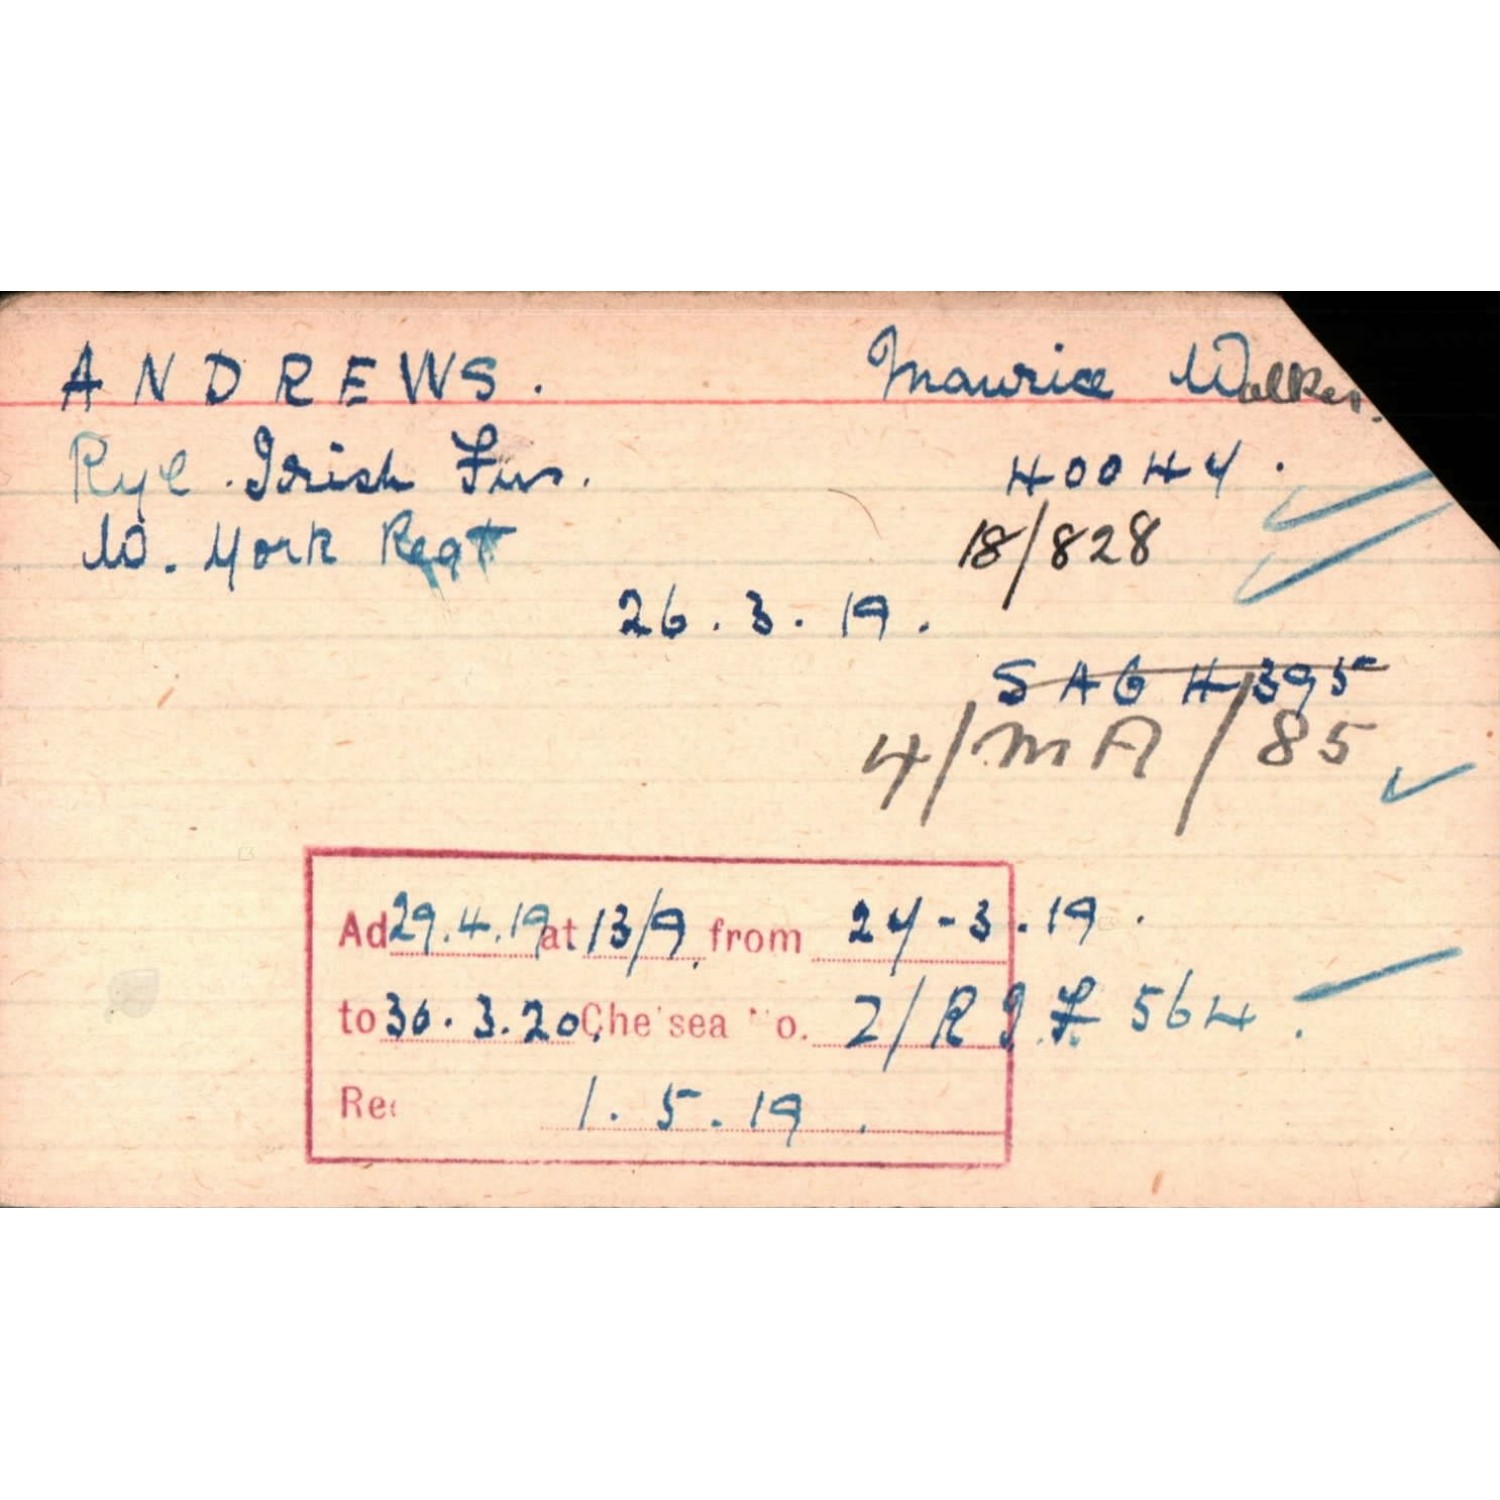 ANDREWS. Maurice Walker.
Ryl. Irish Fus. 40044.
W. York Regt 18/828
26.3.19.
SAG 4395
4/MA/85
Ad 29.4.19 at 13/9 from 24-3.19.
to 30.3.20 Chelsea No. 2/RIF 564.
Rec 1.5.19.